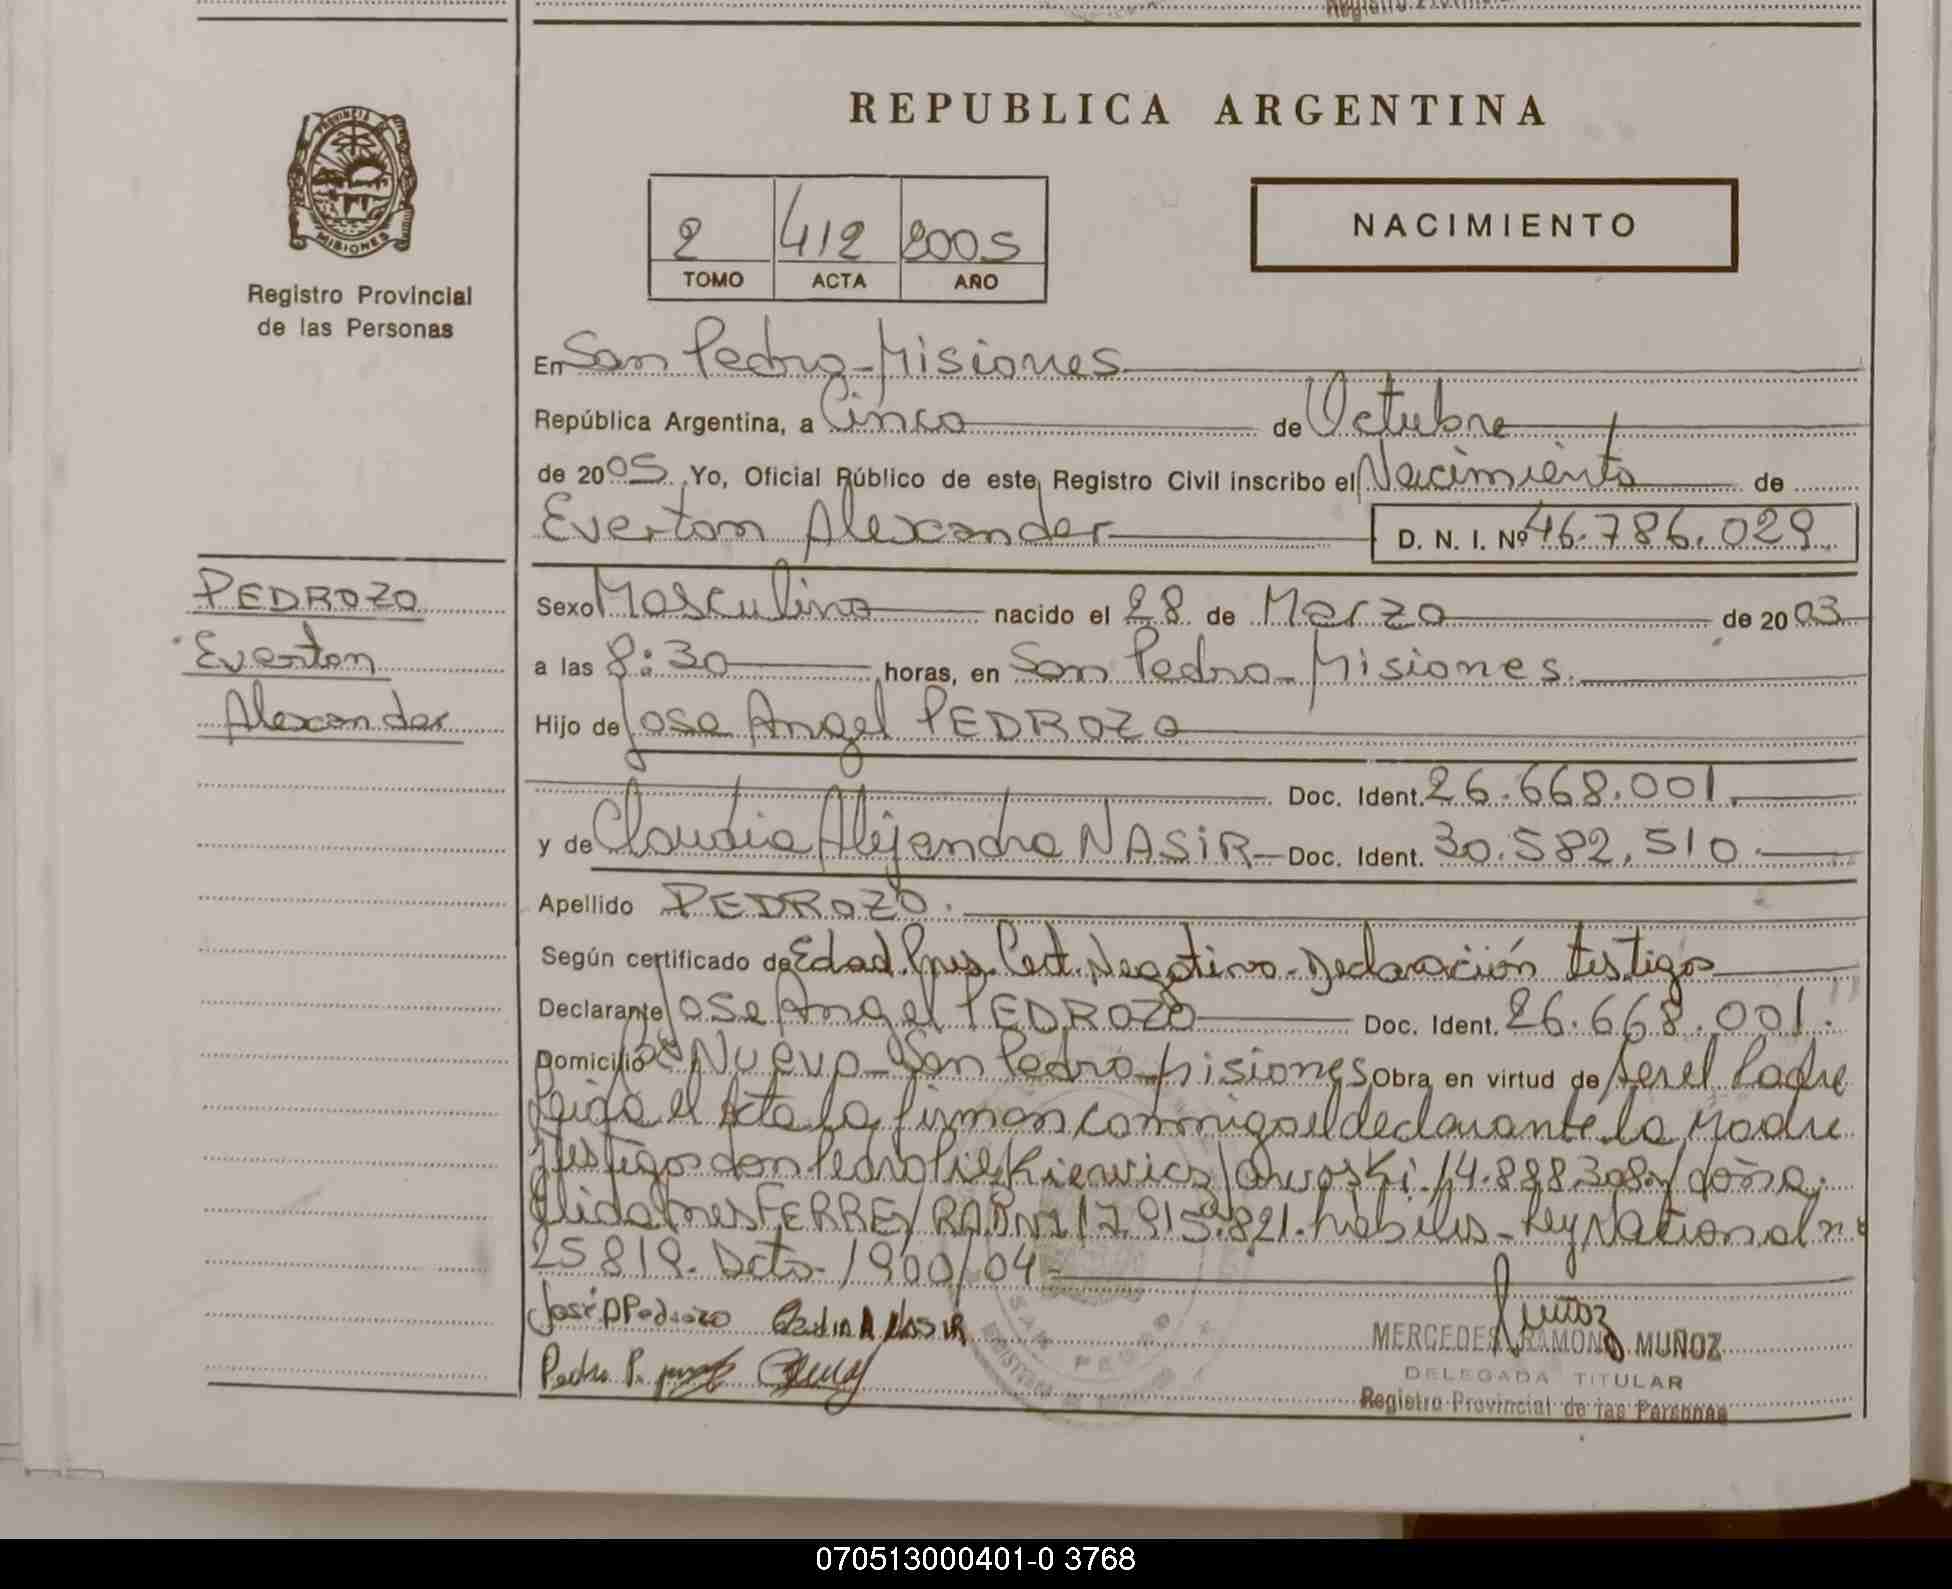 REPUBLICA ARGENTINA
PROVINCIA DE
MISIONES
Registro Provincial
de las Personas
2 412 2005
TOMO ACTA AÑO
NACIMIENTO
En San Pedro - Misiones
República Argentina, a Cinco de Octubre
de 2005. Yo, Oficial Público de este Registro Civil inscribo el Nacimiento de
Everton Alexander D. N. I. Nº 46.786.029
PEDROZO
Everton
Alexander
Sexo Masculino nacido el 28 de Marzo de 2003
a las 8:30 horas, en San Pedro - Misiones.
Hijo de Jose Angel PEDROZO
Doc. Ident. 26.668.001.
y de Claudia Alejandra NASiR - Doc. Ident. 30.582.510.
Apellido PEDROZO.
Según certificado de Edad. Pres. Cert. Negativo - Declaración testigos
Declarante Jose Angel PEDROZO Doc. Ident. 26.668.001.
Domicilio Bº Nuevo - San Pedro - Misiones Obra en virtud de ser el Padre
leida el Acta la firman conmigo el declarante la Madre
testigos don Pedro 14.888.308 y doña
Elida Ines FERREYRA 17.915.821. habiles - Ley National nº
25819. Dcto. 1900/04
José A Pedrozo Claudia A NASIR
Pedro P.
Muñoz
MERCEDES RAMONA MUÑOZ
DELEGADA TITULAR
Registro Provincial de las Personas
SAN PEDRO
070513000401-0 3768